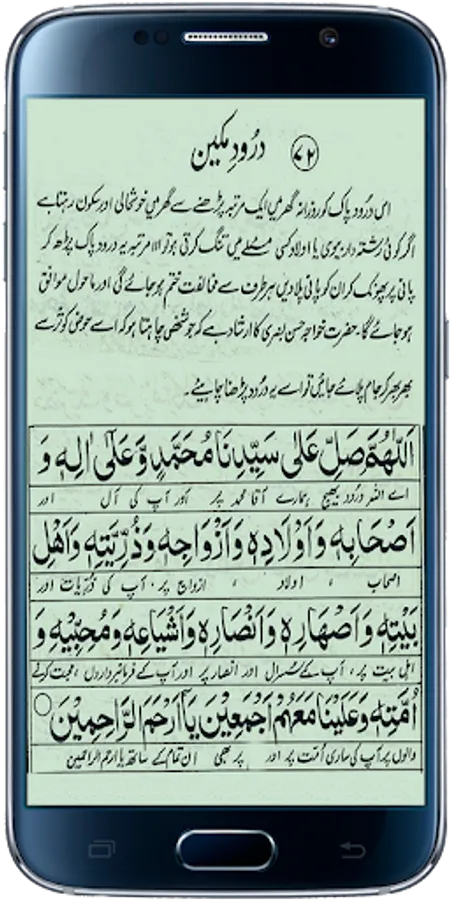 ۷۲ درُودِ مکین
اس درُود پاک کو روزانہ گھر میں ایک مرتبہ پڑھنے سے گھر میں خوشحالی اور سکون رہتا ہے
اگر کوئی رشتہ دار بیوی یا اولاد کسی مسئلے میں تنگ کرتی ہو تو ۱۱ مرتبہ یہ درود پاک پڑھ کر
پانی پر پھونک کر ان کو پانی پلا دیں ہر طرف سے مخالفت ختم ہو جائے گی اور ماحول موافق
ہو جائے گا۔ حضرت خواجہ حسن بصری کا ارشاد ہے کہ جو شخص یہ چاہتا ہو کہ اسے حوض کوثر سے
بھر بھر کر جام پلائے جائیں تو اسے یہ درُود پڑھنا چاہیئے۔
اَللّٰهُمَّ صَلِّ عَلٰى سَيِّدِنَا مُحَمَّدٍ وَّعَلٰٓى اٰلِهٖ وَ
اے اللہ درُود بھیج ہمارے آقا محمد پر اور آپ کی آل اور
اَصْحَابِهٖ وَاَوْلَادِهٖ وَاَزْوَاجِهٖ وَذُرِّيَّتِهٖ وَاَهْلِ
اصحاب ، اولاد ، ازواج پر، آپ کی ذُرِّیات اور
بَيْتِهٖ وَاَصْهَارِهٖ وَاَنْصَارِهٖ وَاَشْيَاعِهٖ وَمُحِبِّيْهِ وَ
اہل بیت پر، آپ کے سُسرال اور انصار پر اور آپ کے فرمانبرداروں ، محبت کرنے
اُمَّتِهٖ وَعَلَيْنَا مَعَهُمْ اَجْمَعِيْنَ يَآ اَرْحَمَ الرَّاحِمِيْنَ ○
والوں پر آپ کی ساری اُمّت پر اور پر بھی ان تمام کے ساتھ یا ارحم الراحمین